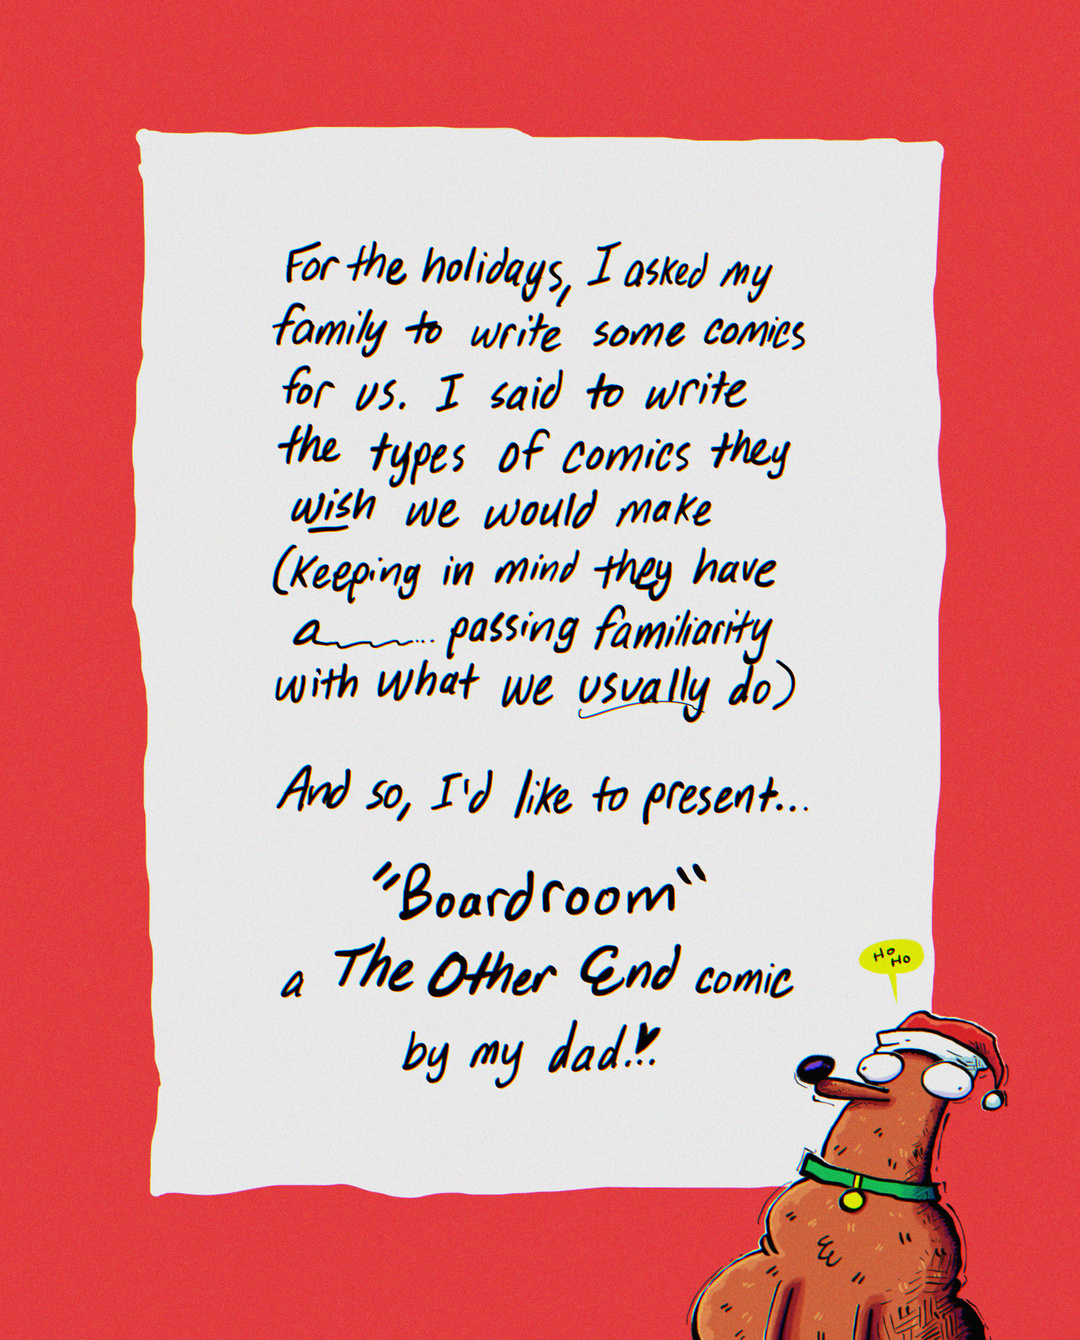 For the holidays, I asked my
family to write some comics
for us. I said to write
the types of comics they
wish we would make
(Keeping in mind they have
a... passing familiarity
with what we usually do)
And so, I'd like to present...
"Boardroom"
a The Other End comic
by my dad!..
HO
HO